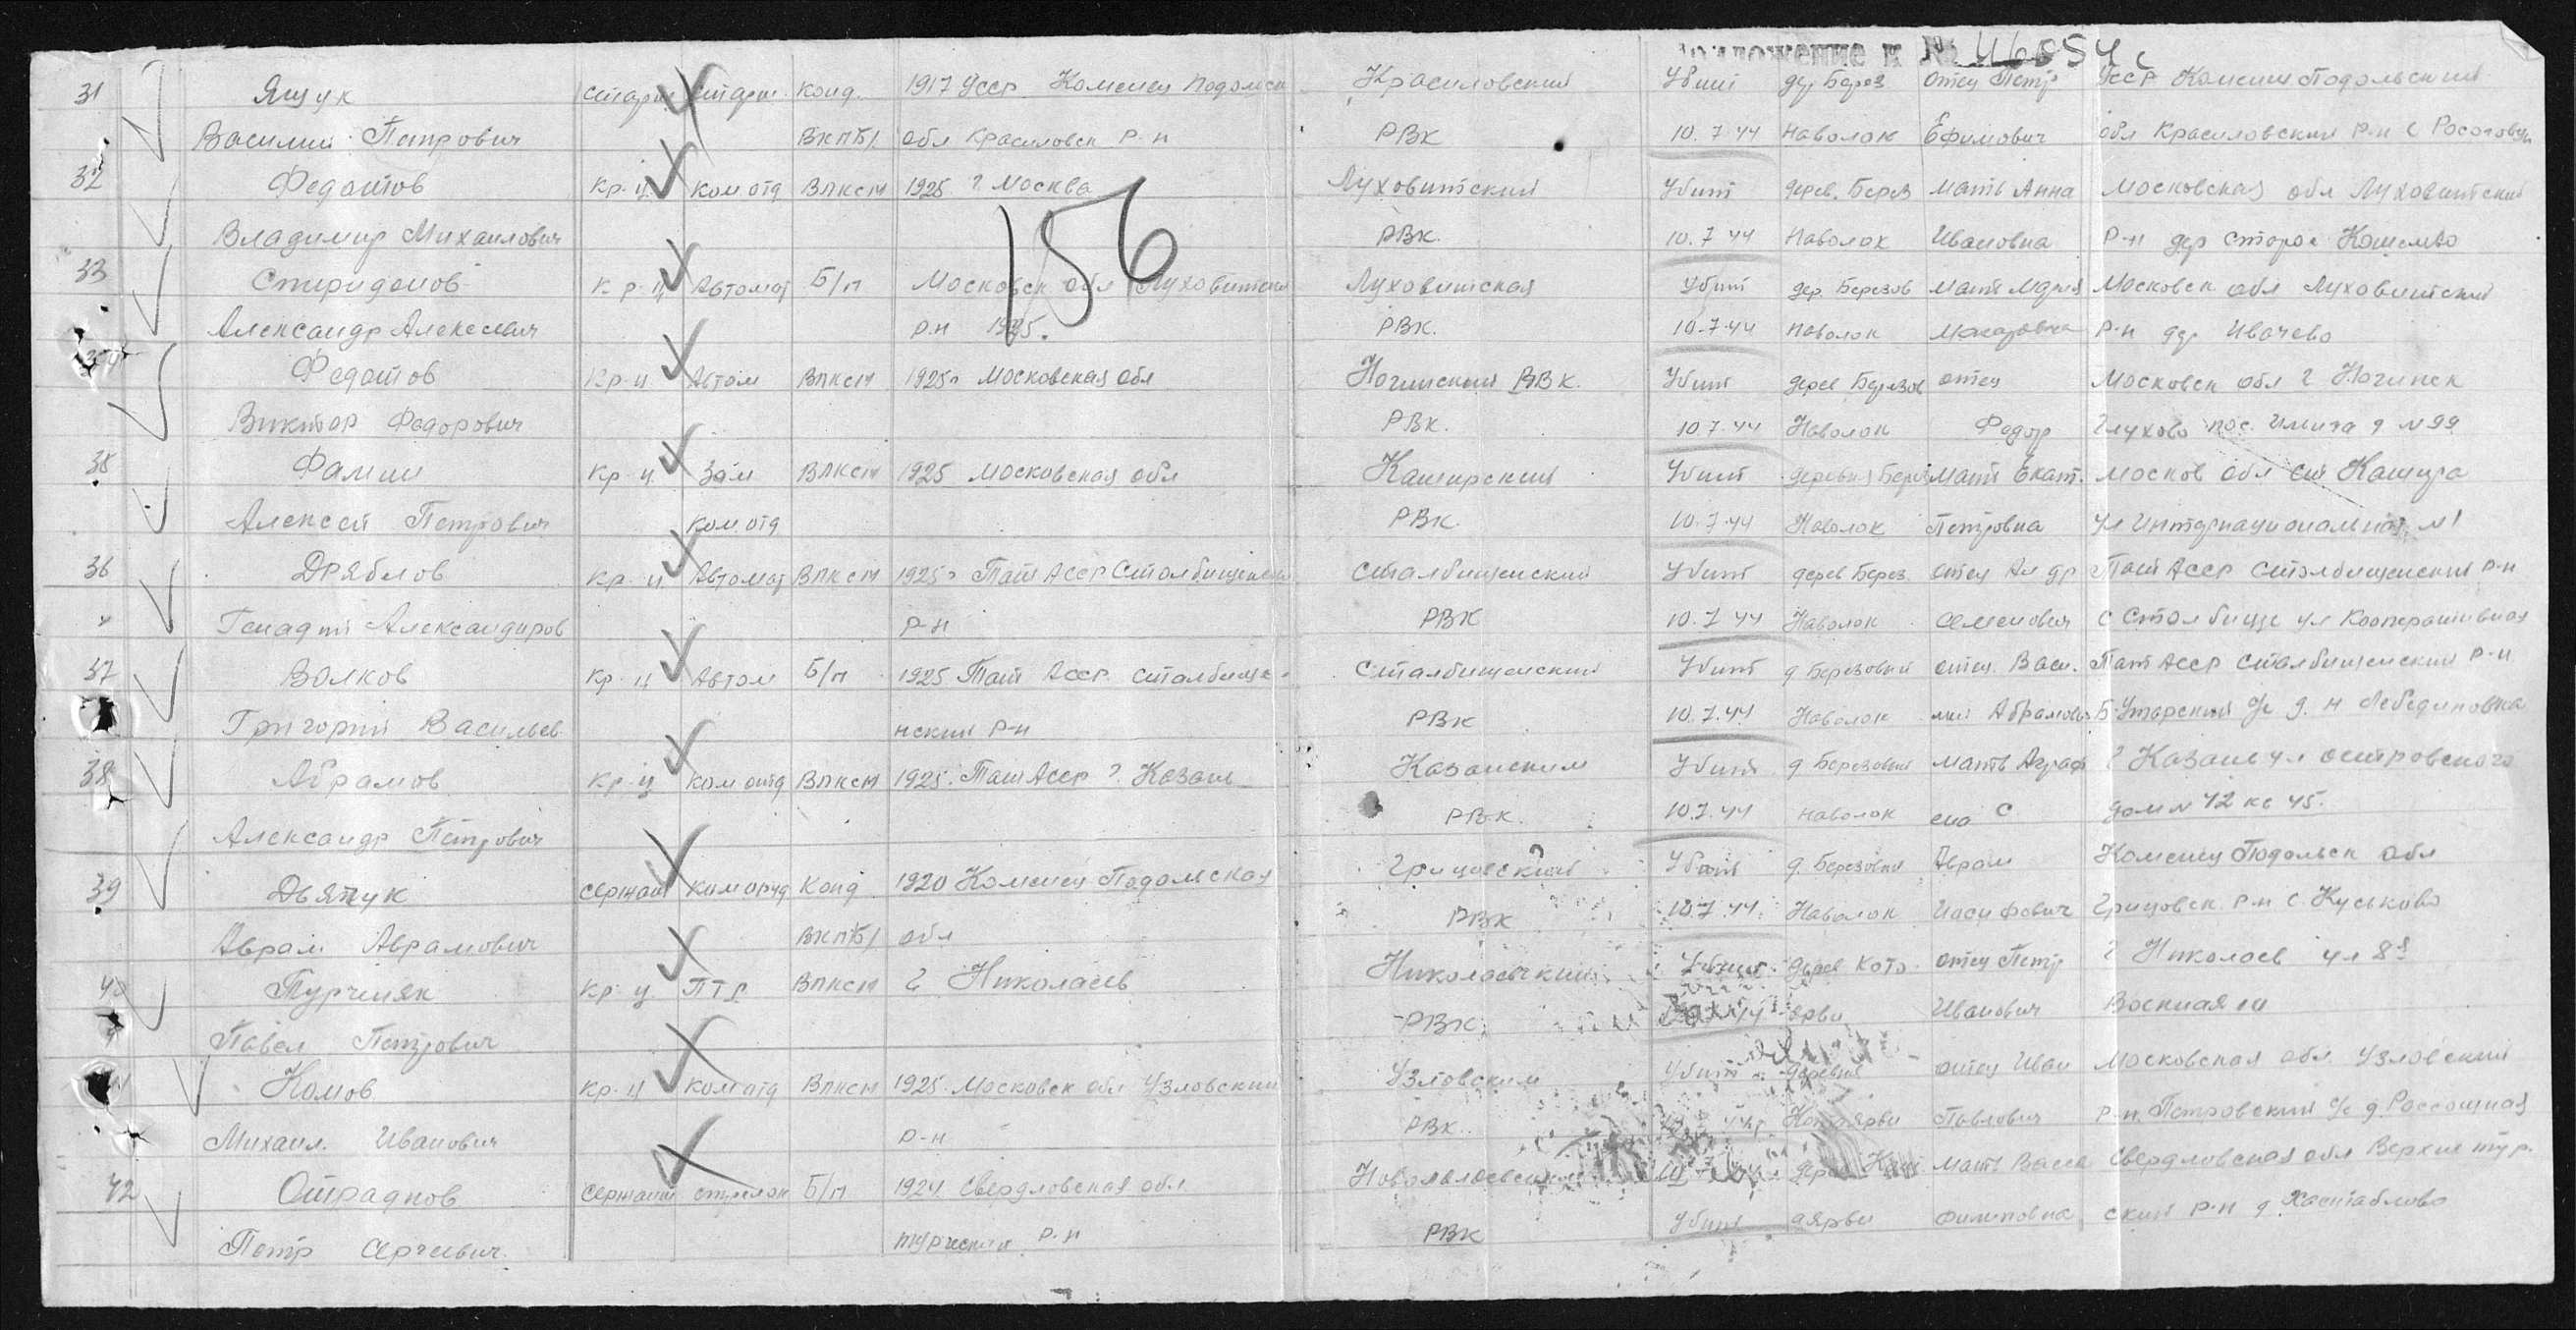 Приложение к № 46054с
31 Ящук старш старш Конд. 1917 Усср Каменец Подольск Красиловский Убит дер Берез отец Петр Усср Каменец Подольский
Василий Петрович ВКП/б/ обл Красиловск р-н РВК 10.7.44 Наволок Ефимович обл Красиловский р-н с
32 Федотов Кр-ц Ком отд Влксм 1925 г. Москва Луховитский Убит дерев. Берез мать Анна Московская обл Луховитский
156
Владимир Михайлович РВК. 10.7.44 Наволок Ивановна р-н дер Старое
33 Спиридонов Кр-ц Автомат Б/п Московск обл Луховитский Луховитская Убит дер. Березов мать Мария Московск обл Луховитский
Александр Алексеевич р-н 1925. РВК. 10.7.44 Наволок Макаровна р-н дер Ивачево
Федотов Кр-ц Автом Влксм 1925г Московская обл Ногинский РВК. Убит дерев Березов отец Московск обл г Ногинск
Виктор Федорович РВК. 10.7.44 Наволок Федор Глухово пос. д №99
35 Фамин Кр-ц Зам Влксм 1925 Московская обл Каширский Убит деревня Берез Мать Екат. Москов обл ст Кашира
Алексей Петрович ком. отд РВК. 10.7.44 Наволок Петровна ул Интернациональная №1
36 Дряблов Кр-ц Автомат Влксм 1925г Тат Асср Столбищенск Столбищенский Убит дерев Берез отец Ал др Тат Асср Столбищенский р-н
Генадий Александров р-н РВК 10.7.44 Наволок Семенович с Столбище ул Кооперативная
37 Волков Кр-ц Автом Б/п 1925 Тат Асср Столбище- Столбищенский Убит д Березовый отец Васи- Тат Асср Столбищенский р-н
Григорий Васильев нский р-н РВК 10.7.44 Наволок лий Абрамов с/с д. н Лебединовка
38 Абрамов Кр-ц Ком отд Влксм 1925. Тат Асср г. Казань Казанским Убит д Березовый мать Аграф г Казань ул Островского
Александр Петрович РВК. 10.7.44 Наволок ена С. дом №42 кв 45.
39 Дьячук сержант Ком отд Конд 1920 Каменец Подольская Грицовский Убит д. Березовый Аврам Каменец Подольск обл
Аврам Аврамович ВКП/б/ обл РВК 10.7.44 Наволок Иосифович Грицовск р-н с. Куськово
40 Турчиняк Кр-ц ПТР Влксм г Николаев Николаевский Убит дерев Кото отец Петр г Николаев ул 8я
Павел Петрович РВК ярви Иванович Военная 10
41 Комов Кр-ц Ком отд Влксм 1925. Московск обл Узловский Узловским Убит деревня отец Иван Московская обл. Узловский
Михаил Иванович р-н РВК. ярви Павлович р-н. Петровский с/с д Россошная
42 Отраднов Сержант стрелок Б/п 1924 Свердловская обл дерев Мать Васса Свердловская обл Верхне тур.
Петр Сергеевич р-н РВК Убит аярви Филиповна ский р-н д